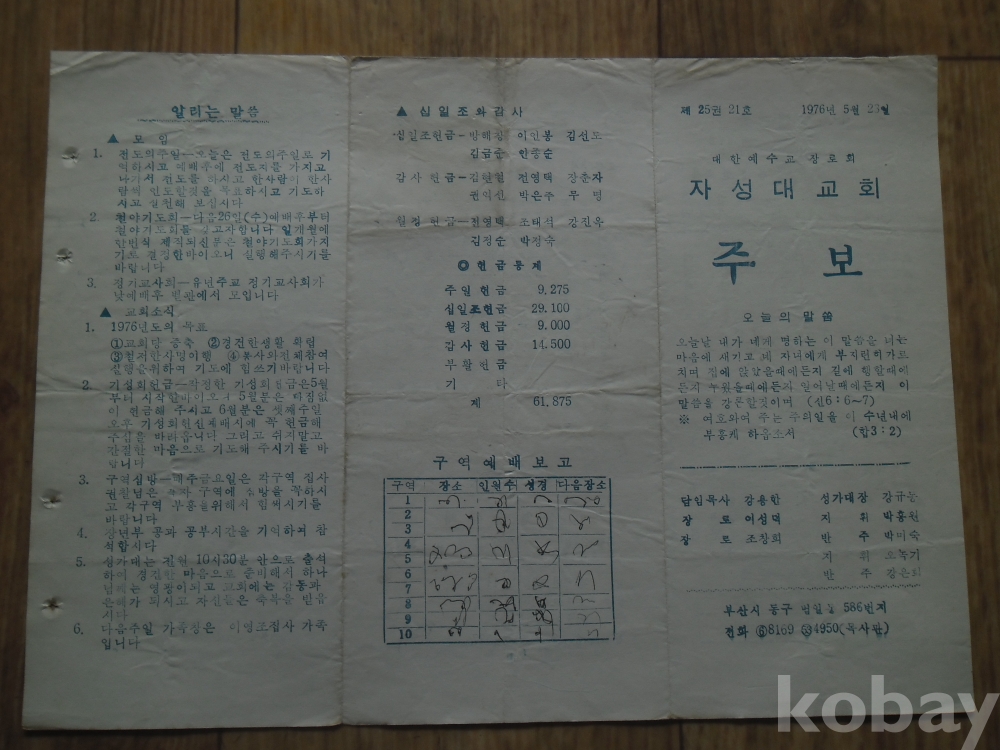 알리는 말씀
▲ 모 임
1. 전도의주일—오늘은 전도주일로 기
억하시고 예배후에 전도지를 가지고
나가서 전도를 하시고 한사람이 한사
람씩 인도할것을 목표하시고 기도하
시고 실천해 보십시다
2. 철야기도회—다음26일(수)예배후부터
철야기도회를 갖고자합니다 일개월에
한번씩
기로 결정한바이오니 실행해주시기를
바랍니다
3. 정기교사회—유년주교 정기교사회가
낮예배후 별관에서 모입니다
▲ 교회소식
1. 1976년도의 목표
①교회당 증축 ②경건한생활 확립
③철저한사명이행 ④봉사와전폐참여
실행을위하여 기도에 힘쓰기바랍니다
2. 기성회헌금—작정한 기성회헌금은5월
부터 시작할바이오니 5월분은
이 헌금해 주시고 6월분은 셋째주일
오후 기성회헌신예배시에 꼭 헌금해
주심을 바라옵니다 그리고 쉬지말고
간절한 마음으로 기도해 주시기를 바
랍니다
3. 구역심방—매주금요일은 각구역 집사
권찰님은 각자 구역에 심방을 꼭하시
고 각구역 부흥을위해서 힘써시기를
바랍니다
4. 장년부 공과 공부시간을 기억하여 참
석합시다
5. 성가대는 전원 10시30분 안으로 출석
하여 경건한 마음으로 준비해서 하나
님께는 영광이되고 교회에는 감동과
은혜가 되시고 자신들은 축복을 받읍
시다
6. 다음주일 가족창은 이영조집사 가족
입니다
▲ 십일조와감사
십일조헌금— 이인봉 김선도
김금준 안중순
감사 헌금—김현철 전영택 장춘자
권익선 박은주 무 명
월정 헌금—전영택 조태석 강진옥
김정순 박정숙
◎헌금통계
주일헌금 9.275
십일조헌금 29.100
월정헌금 9.000
감사헌금 14.500
부활헌금
기 타
계 61.875
구역예배보고
구역 장소 인원수 성경 다음장소
1
2
3
4
5
6
7
8
9
10
제 25권 21호 1976년 5월 23일
대한예수교 장로회
자성대교회
주 보
오늘의 말씀
오늘날 내가 네게 명하는 이 말씀을 너는
마음에 새기고 네 자녀에게 부지런히가르
치며 집에 앉았을때에든지 길에 행할때에
든지 누웠을때에든지 일어날때에든지 이
말씀을 강론할것이며 (신6:6~7)
※ 여호와여 주는 주의일을 이 수년내에
부흥케 하옵소서 (합3:2)
담임목사 강용한 성가대장 강규농
장 로 이성덕 지 휘 박흥원
장 로 조창희 반 주 박미숙
지 휘 오녹기
반 주 강은희
부산시 동구 범일동 586번지
전화 ⑥8169 ③4950(목사관)
kobay